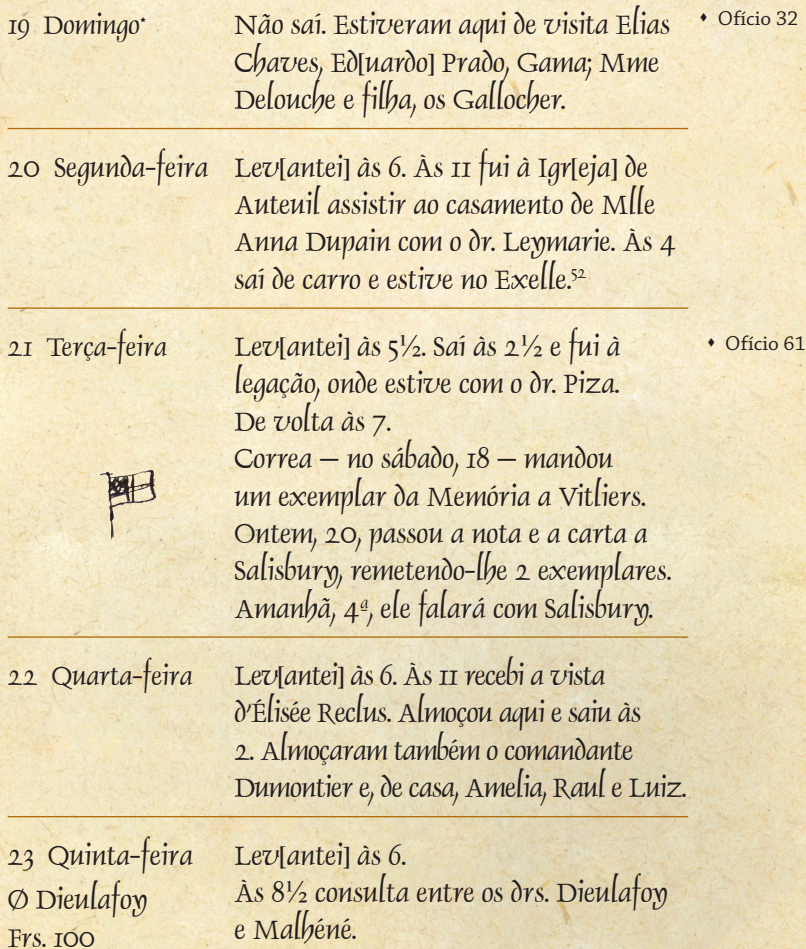 19 Domingo*
Não saí. Estiveram aqui de visita Elias
Chaves, Ed[uardo] Prado, Gama; Mme
Delouche e filha, os Gallocher.
♦ Ofício 32
20 Segunda-feira
Lev[antei] às 6. Às 11 fui à Igr[eja] de
Auteuil assistir ao casamento de Mlle
Anna Dupain com o dr. Leymarie. Às 4
saí de carro e estive no Exelle.52
21 Terça-feira
Lev[antei] às 5½. Saí às 2½ e fui à
legação, onde estive com o dr. Piza.
De volta às 7.
Correa — no sábado, 18 — mandou
um exemplar da Memória a Vitliers.
Ontem, 20, passou a nota e a carta a
Salisbury, remetendo-lhe 2 exemplares.
Amanhã, 4ª, ele falará com Salisbury.
♦ Ofício 61
22 Quarta-feira
Lev[antei] às 6. Às 11 recebi a vista
d'Élisée Reclus. Almoçou aqui e saiu às
2. Almoçaram também o comandante
Dumontier e, de casa, Amelia, Raul e Luiz.
23 Quinta-feira
Ø Dieulafoy
Frs. 100
Lev[antei] às 6.
Às 8½ consulta entre os drs. Dieulafoy
e Malhéné.